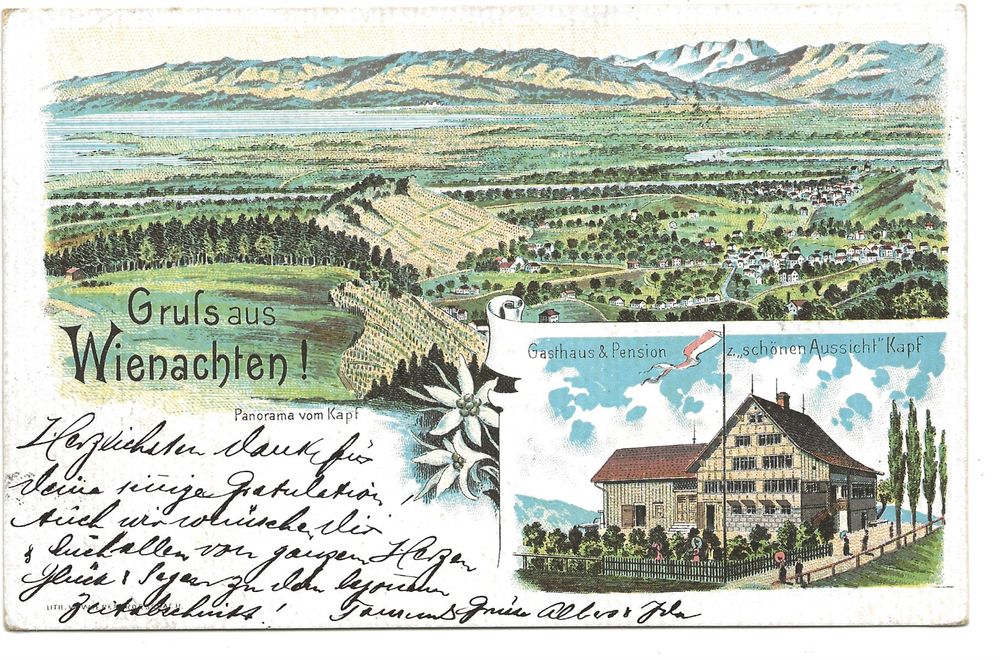 Gruſs aus
Wienachten!
Panorama vom Kapf
Gasthaus & Pension z. „schönen Aussicht" Kapf
Herzlichsten Dank für
deine innige Gratulation!
Auch wir wünschen Dir
& Euch allen von ganzem Herzen
Glück & Segen zu dem
Zeitabschnitt!
Tausend Grüsse Albert &
LITH.